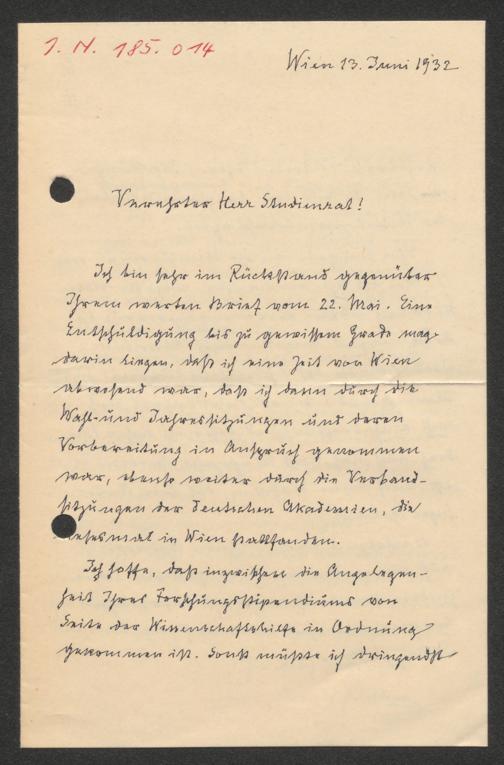 J. N. 185.014
Wien 13. Juni 1932
Verehrter Herr Studienrat!
Ich bin sehr im Rückstand gegenüber
Ihrem werten Brief vom 22. Mai. Eine
Entschuldigung bis zu gewissem Grade mag
darin liegen, daß ich eine Zeit von Wien
abwesend war, daß ich dann durch die
Wahl- und Jahressitzungen und deren
Vorbereitung in Anspruch genommen
war, ebenso weiter durch die Verband-
sitzungen der Deutschen Akademien, die
diesesmal in Wien stattfanden.
Ich hoffe, daß inzwischen die Angelegen-
heit Ihres Forschungsstipendiums von
Seite der Wissenschaftshilfe in Ordnung
gekommen ist. Sonst müßte ich dringendst